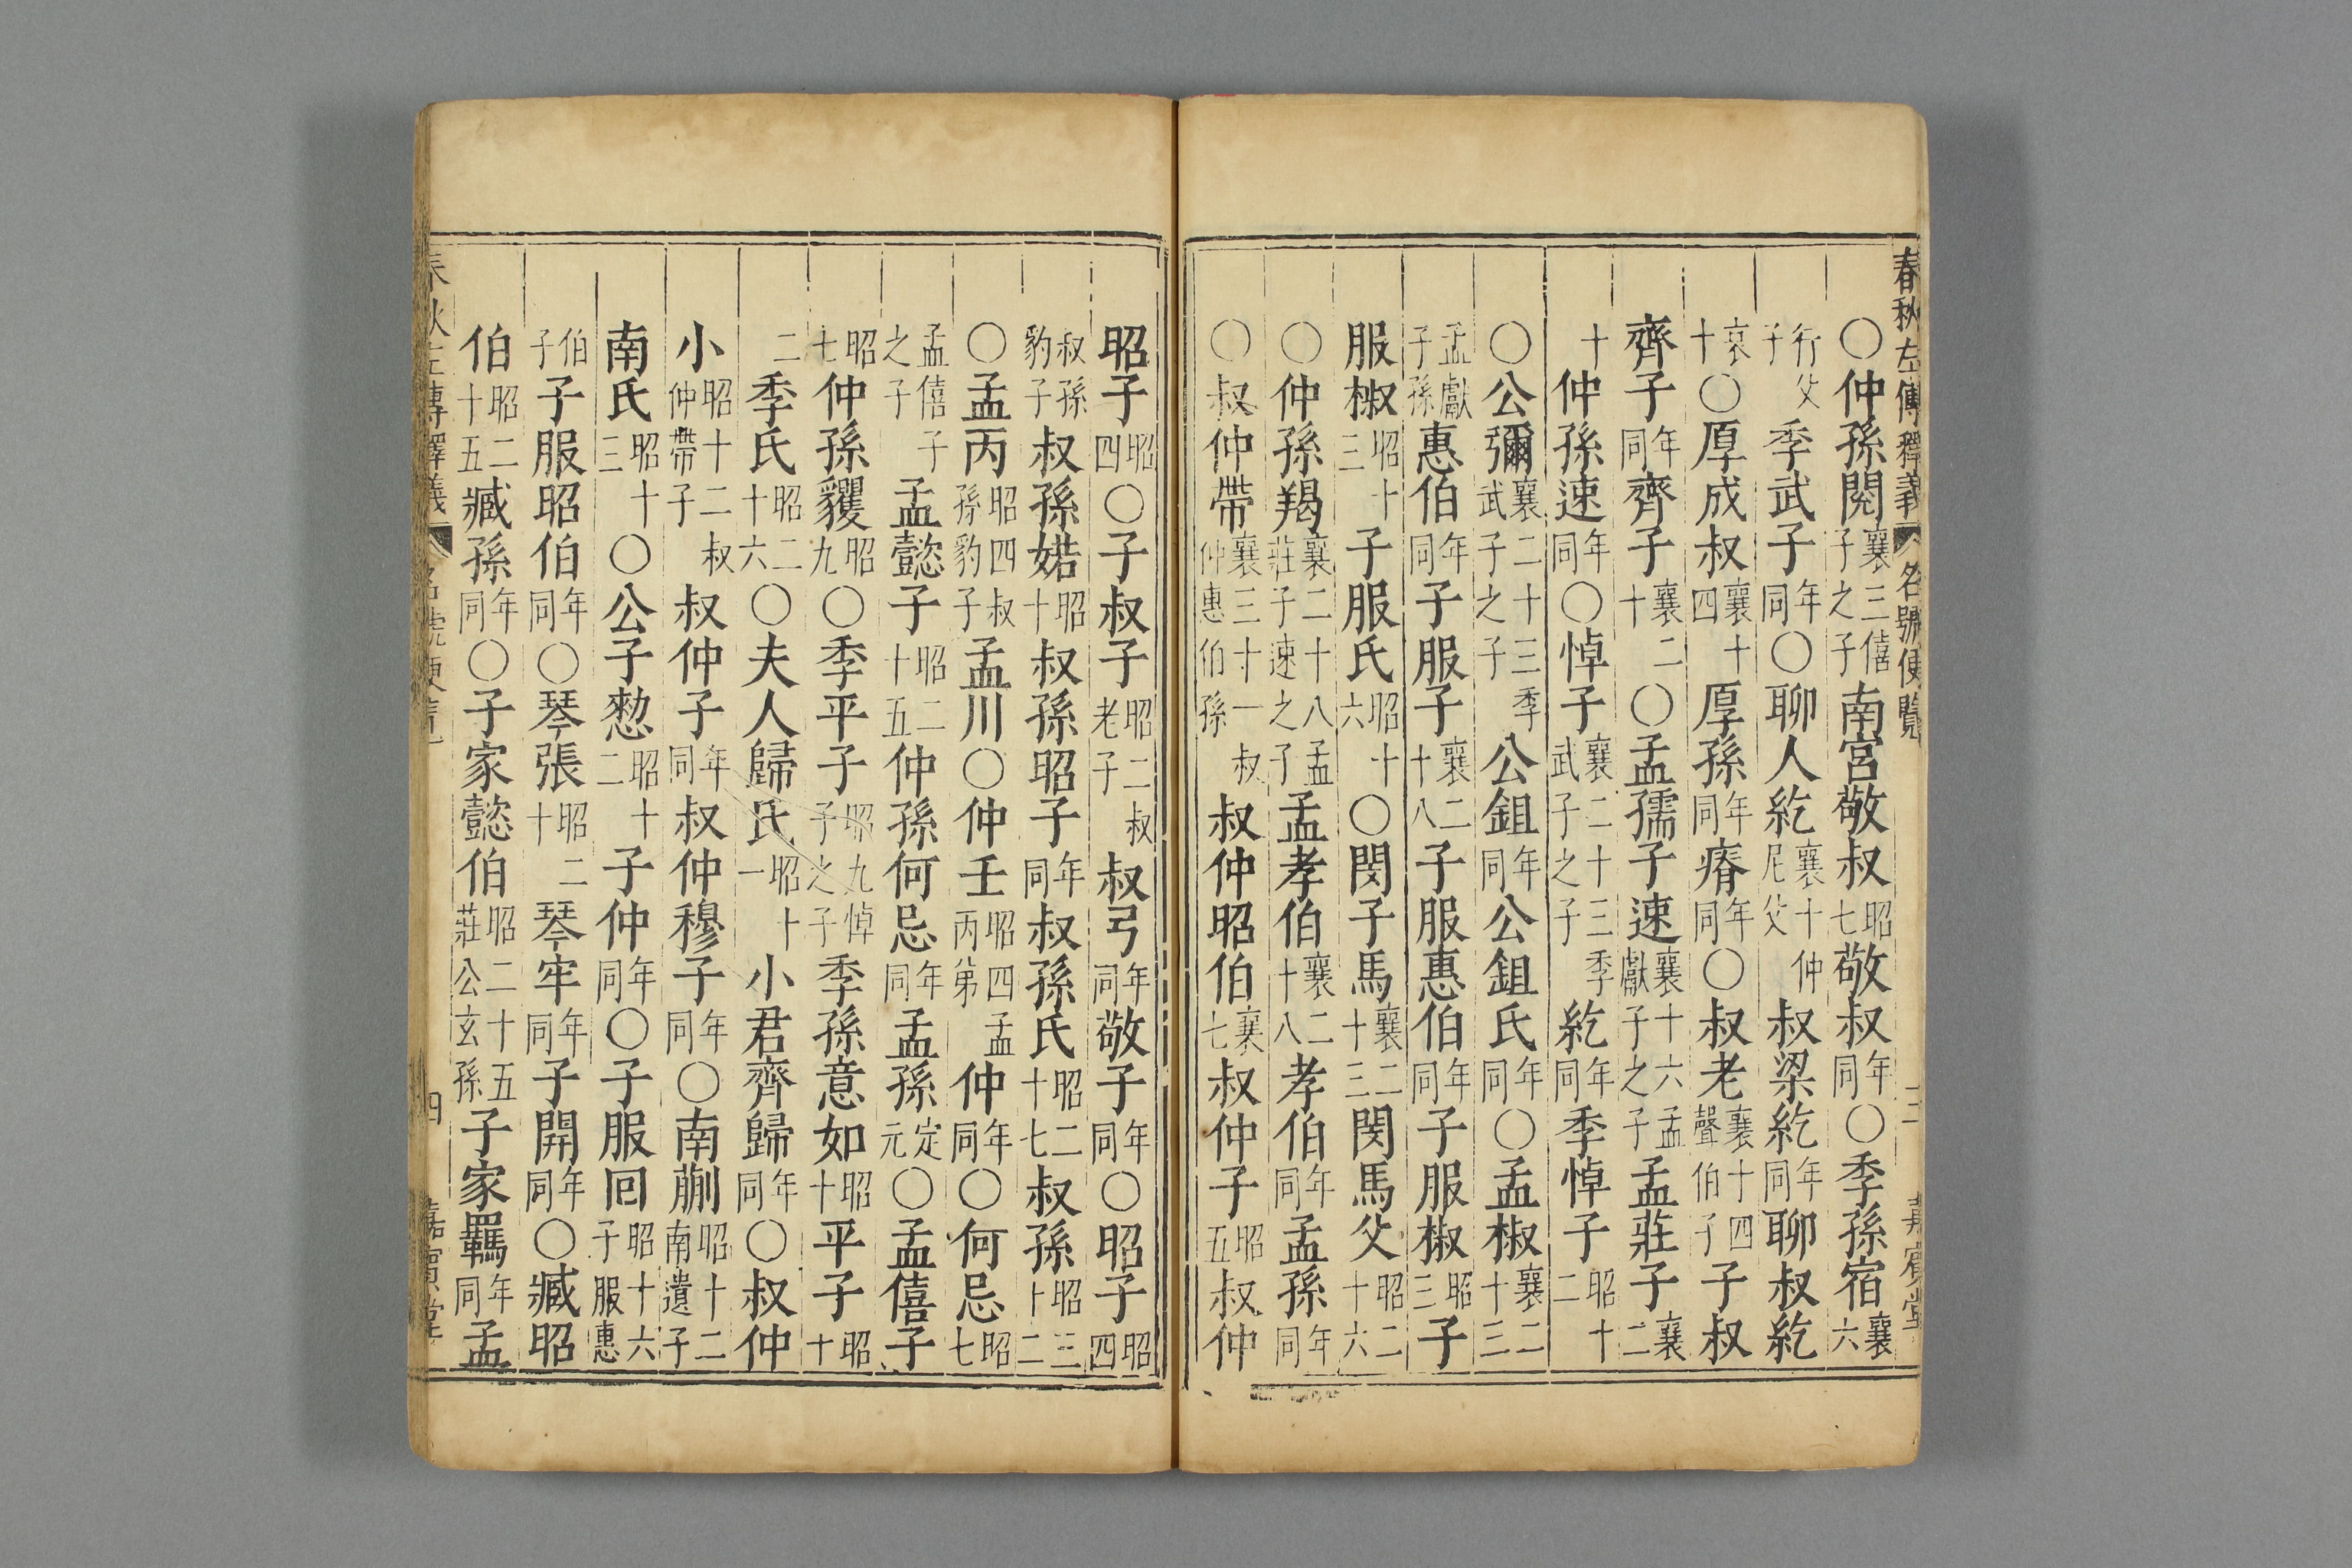 春秋左傳釋義 名號便覽 三 嘉賓堂
〇仲孫閱襄三僖子之子南宮敬叔昭七敬叔年同〇季孫宿襄六
行父子季武子年同〇聊人紇襄十仲尼父叔梁紇年同聊叔紇
哀十〇厚成叔襄十四厚孫年同瘠年同〇叔老襄十四聲伯子子叔
齊子年同齊子襄二十〇孟孺子速襄十六孟獻子之子孟莊子襄二
十仲孫速年同〇悼子襄二十三季武子之子紇年同季悼子昭十二
〇公彌襄二十三季武子之子公鉏年同公鉏氏年同〇孟椒襄二十三
孟獻子孫惠伯年同子服子襄二十八子服惠伯年同子服椒昭三子
服椒昭十三子服氏昭十六〇閔子馬襄二十三閔馬父昭二十六
〇仲孫羯襄二十八孟莊子速之子孟孝伯襄二十八孝伯年同孟孫年同
〇叔仲帶襄三十一叔仲惠伯孫叔仲昭伯襄七叔仲子昭五叔仲
昭子昭四〇子叔子昭二叔老子叔弓年同敬子年同〇昭子昭四
叔孫豹子叔孫婼昭十叔孫昭子年同叔孫氏昭二十七叔孫昭三十二
〇孟丙昭四叔孫豹子孟川〇仲壬昭四孟丙弟仲年同〇何忌昭七
孟僖子之子孟懿子昭二十五仲孫何忌年同孟孫定元〇孟僖子
昭七仲孫貜昭九〇季平子昭九悼子之子季孫意如昭十平子昭十
二季氏昭二十六〇夫人歸氏昭十一小君齊歸年同〇叔仲
小昭十二叔仲帶子叔仲子年同叔仲穆子年同〇南蒯昭十二南遺子
南氏昭十三〇公子憖昭十二子仲年同〇子服回昭十六子服惠
伯子子服昭伯年同〇琴張昭二十琴牢年同子開年同〇臧昭
伯昭二十五臧孫年同〇子家懿伯昭二十五莊公玄孫子家羈年同孟
春秋左傳釋義 名號便覽 四 嘉賓堂